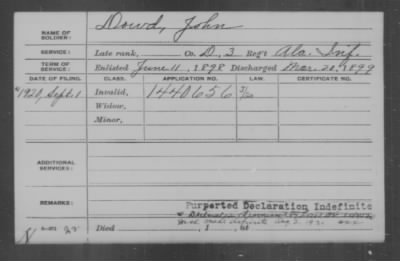 NAME OF SOLDIER: Dowd, John
SERVICE: Late rank, Co. D, 3 Reg't Ala. Inf.
TERM OF SERVICE: Enlisted June 11, 1898 Discharged Mar. 20, 1899
DATE OF FILING. CLASS. APPLICATION NO. LAW. CERTIFICATE NO.
1920, Sept. 1 Invalid, 1440656
Widow,
Minor,
ADDITIONAL SERVICES:
REMARKS: Purported Declaration Indefinite
Died , 1 , at